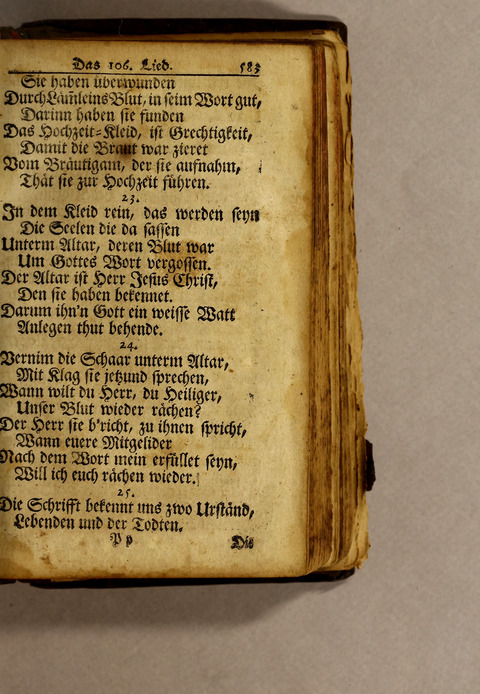 Das 106. Lied. 583
Sie haben überwunden
Durch Lam̃leins Blut, in seim Wort gut,
Darinn haben sie funden
Das Hochzeit-Kleid, ist Grechtigkeit,
Damit die Braut war zieret
Vom Bräutigam, der sie aufnahm,
Thät sie zur Hochzeit führen.
23.
In dem Kleid rein, das werden seyn
Die Seelen die da sassen
Unterm Altar, deren Blut war
Um Gottes Wort vergossen.
Der Altar ist Herr Jesus Christ,
Den sie haben bekennet.
Darum ihn'n Gott ein weisse Watt
Anlegen thut behende.
24.
Vernim die Schaar unterm Altar,
Mit Klag sie jetzund sprechen,
Wann wilt du Herr, du Heiliger,
Unser Blut wieder rächen?
Der Herr sie b'richt, zu ihnen spricht,
Wann euere Mitgelider
Nach dem Wort mein erfüllet seyn,
Will ich euch rächen wieder.
25.
Die Schrifft bekennt uns zwo Urständ,
Lebenden und der Todten.
P p Die